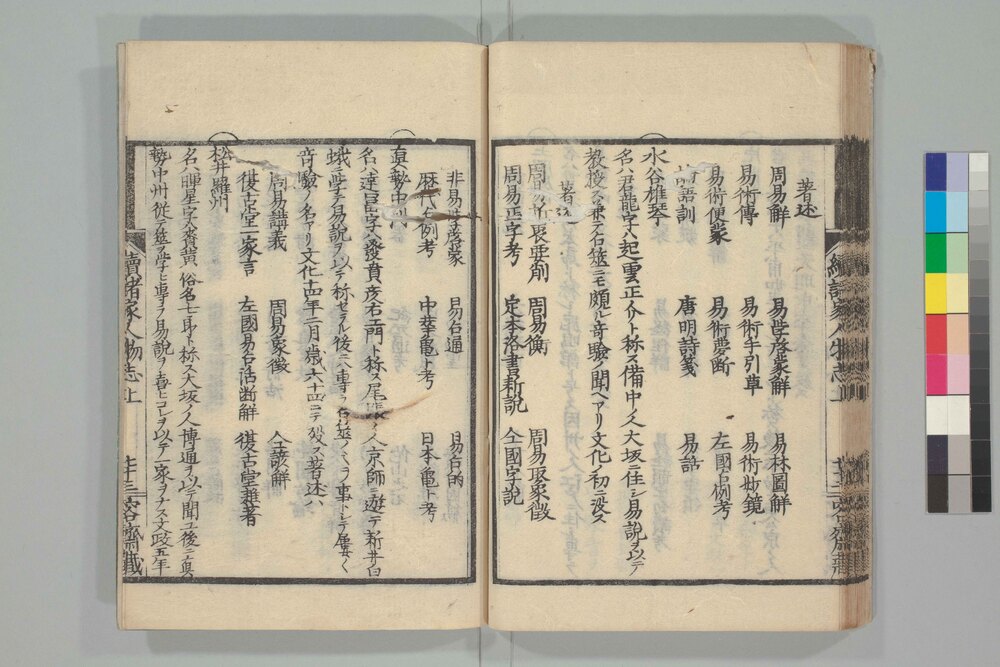 著述
周易解　易学啓蒙解　易林圖解
易術傳　易術手引草　易術妙鏡
易術便蒙　易術夢断　左國占例考
詩語訓　唐明詩箋　易話
水谷雄琴
名ハ君龍字ハ起雲正介ト称ス備中ノ人大坂ニ住シ易説ヲ以テ
教授ス占ニ於テモ頗ル奇験ノ聞ヘアリ文化ノ初ニ没ス
著述
周易　周易衡　周易取象徴
周易正字考　定本洛書新説　仝國字説
續諸家人物志上
非易学啓蒙　易占通　易占的
歴代占例考　中華亀卜考　日本亀卜考
真勢中州
名ハ達富字ハ發貴彦右エ門ト称ス尾張ノ人京師ニ遊テ新井白
蛾ニ学テ易説ヲ以テ称セラル後ニハ専ラ占筮ノミヲ事トシテ屢々
奇驗ノ名アリ文化十四年二月歳六十四ニテ殁ス著述ハ
周易講義　周易象徴　仝該解
復古堂一家言　左國易占活断解　復古堂雜著
松井羅州
名ハ暉星字ハ賚黄俗名七郎ト称ス大坂ノ人博通ヲ以テ聞ユ後ニ真
勢中州ニ從テ筮ヲ学ヒ専ラ易説ヲ喜ヒコレヲ以テ一家ヲナス文政五年
續諸家人物志上　廿三